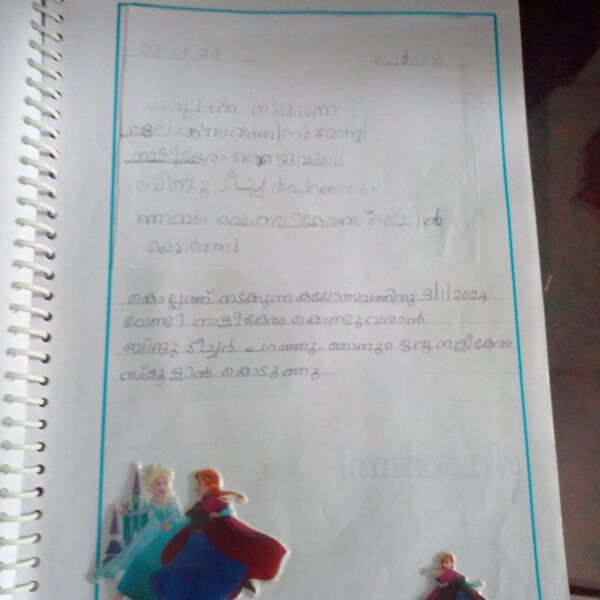 03 01 24
കൊല്ലത്ത് നടക്കുന്ന
കലോത്സവത്തിനു വേണ്ടി
നാളികേരം കൊണ്ടുവരാൻ
ബിന്ദു ടീച്ചർ പറഞ്ഞു.
ഞാനും ഒരു നാളികേരം സ്കൂളിൽ
കൊടുത്തു
കൊല്ലത്ത് നടക്കുന്ന കലോത്സവത്തിനു 3/1/2024
വേണ്ടി നാളികേരം കൊണ്ടുവരാൻ
ബിന്ദു ടീച്ചർ പറഞ്ഞു. ഞാനും ഒരു നാളികേരം
സ്കൂളിൽ കൊടുത്തു.